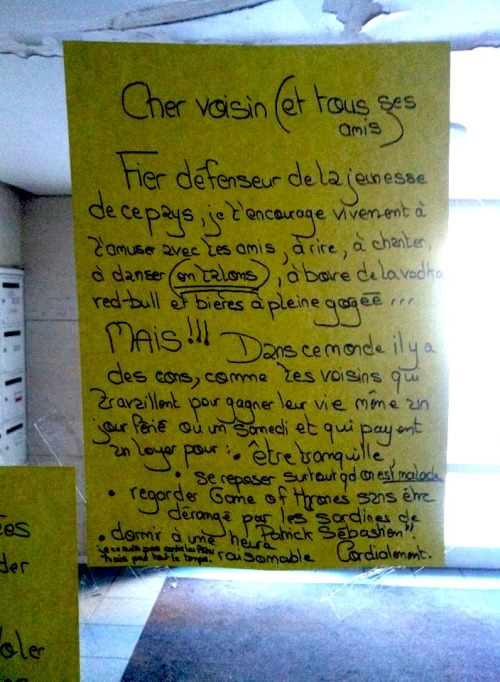 Cher voisin (et tous ses
amis)
Fier défenseur de la jeunesse
de ce pays, je t'encourage vivement à
t'amuser avec tes amis, à rire, à chanter,
à danser (en talons), à boire de la vodka
red-bull et bières à pleine gogée...
MAIS!!! Dans ce monde il y a
des cons, comme tes voisins qui
travaillent pour gagner leur vie même un
jour férié ou un samedi et qui payent
un loyer pour:
• être tranquille,
• se reposer surtout qd on est malade
• regarder Game of Thrones sans être
dérangé par les sardines de
Patrick Sébastien!!
• dormir à une heure
raisonnable Cordialement.
je ne suis pas contre la fête
mais pas tout le temps.
der
oler